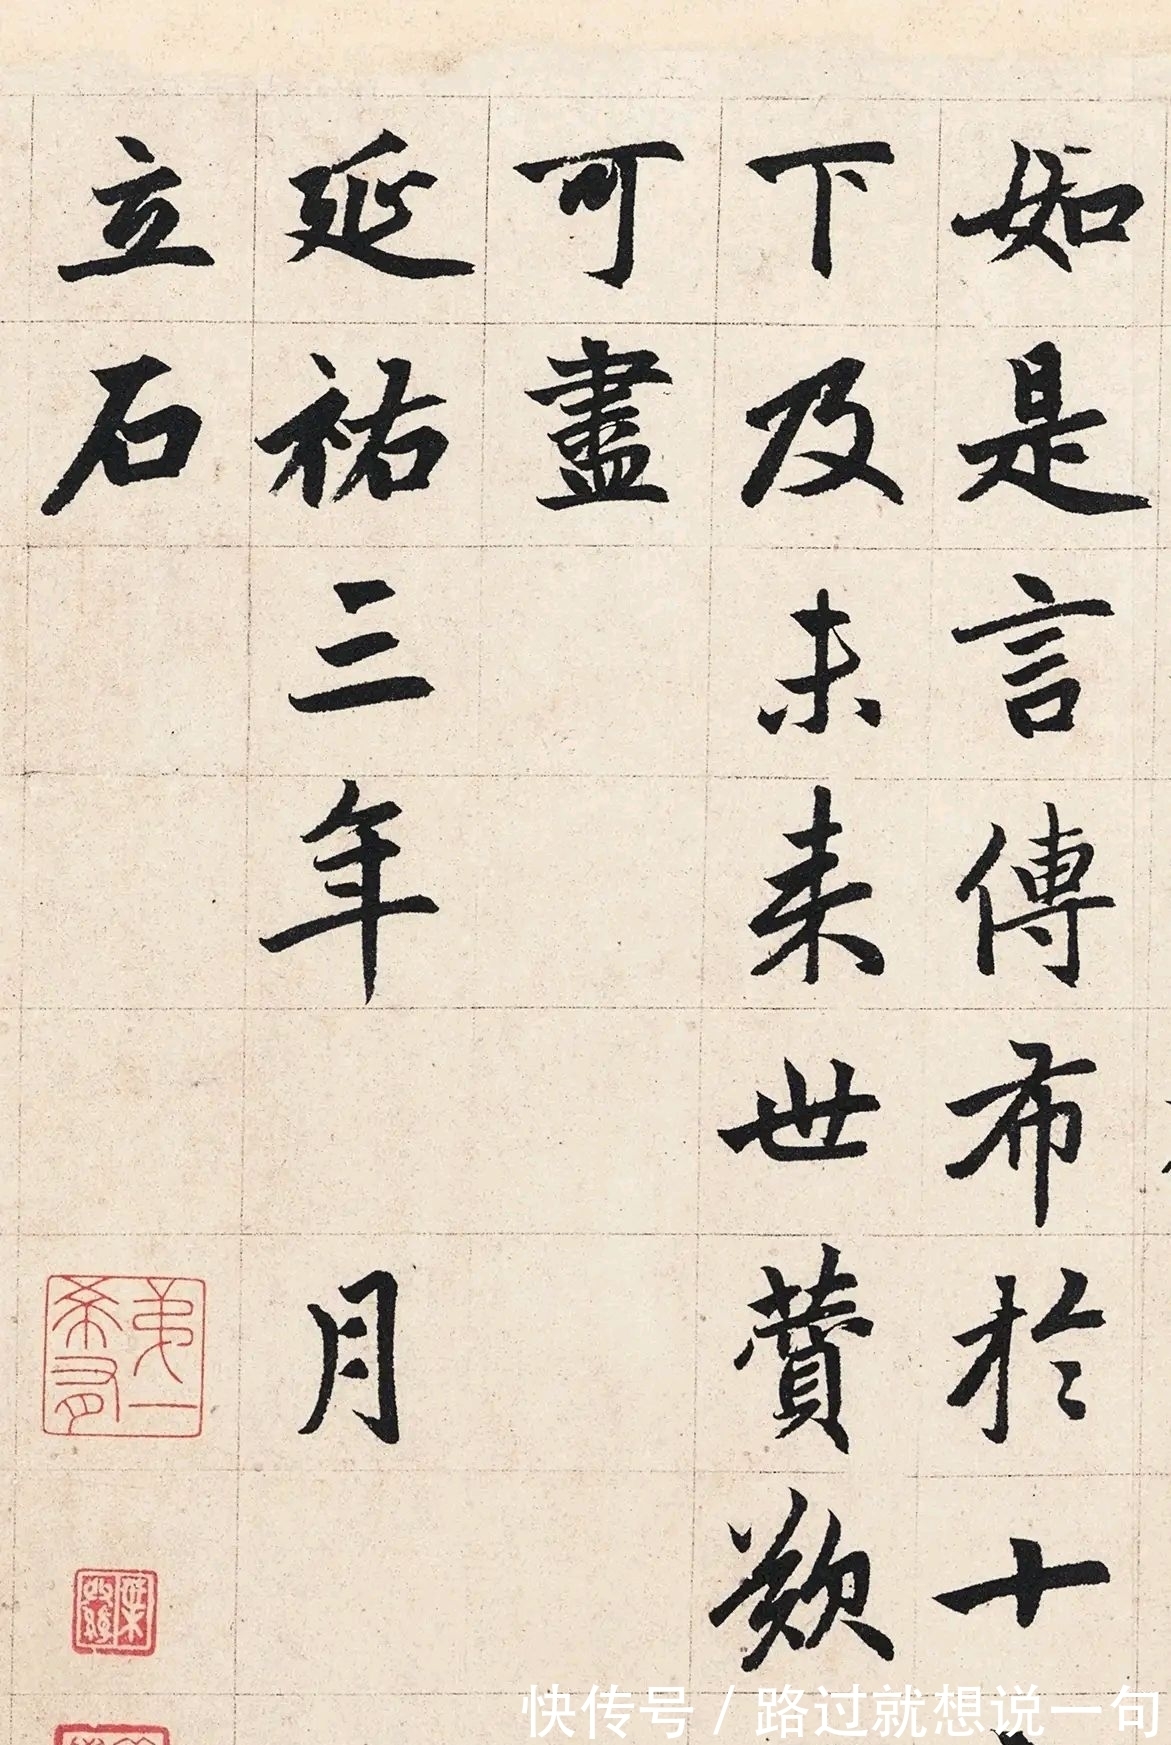 如是言傳布於十
下及未来世藚歎
可盡
延祐三年 月
立石
第一希有
快传号 / 路过就想说一句